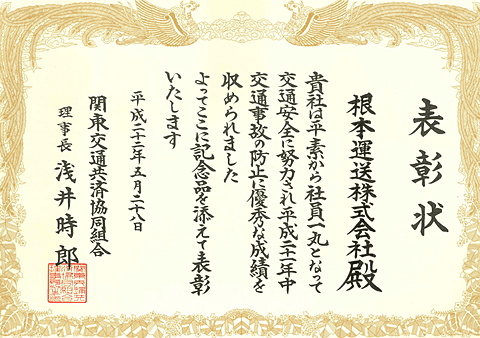 表彰状
根本運送株式会社殿
貴社は平素から社員一丸となって
交通安全に努力され平成二十一年中
交通事故の防止に優秀な成績を
収められました
よってここに記念品を添えて表彰
いたします
平成二十二年五月二十八日
関東交通共済協同組合
理事長 浅井時郎